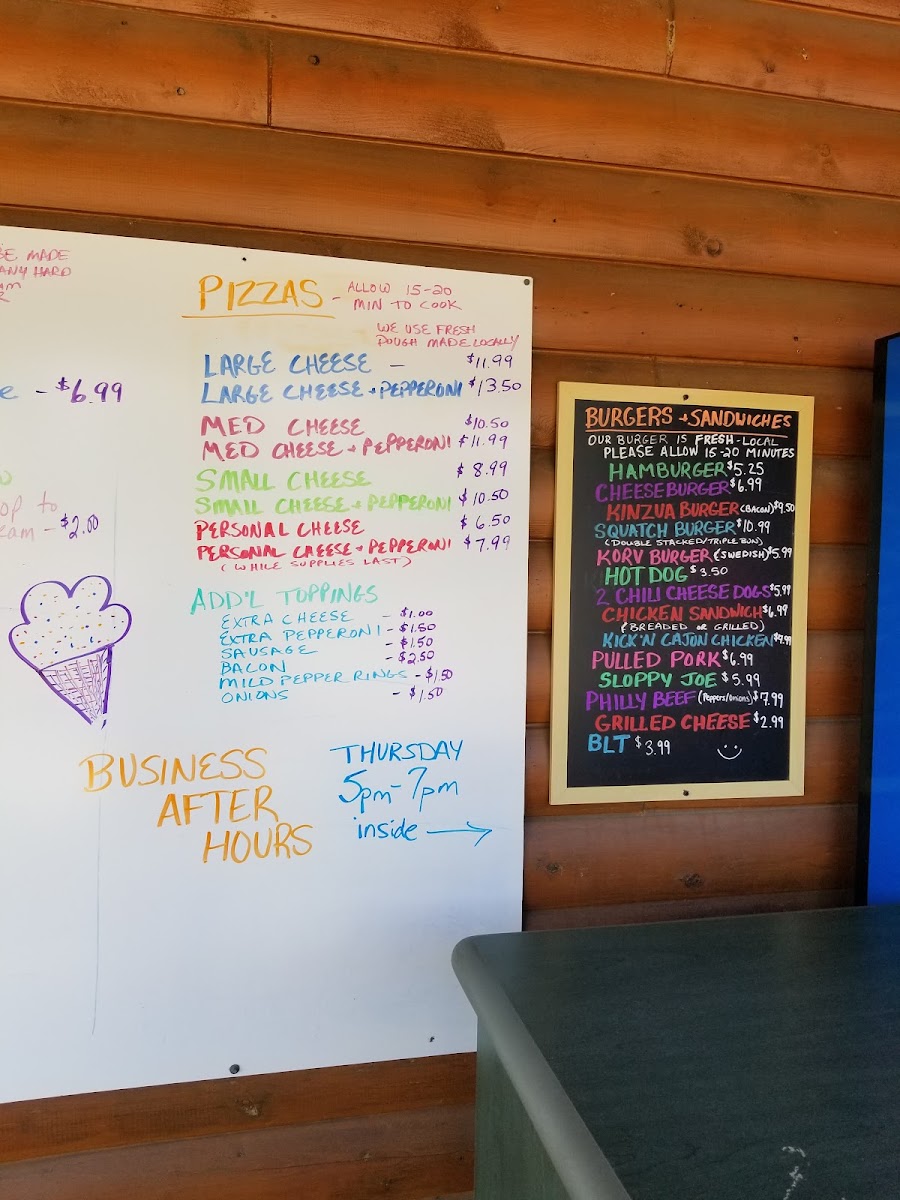 BE MADE
ANY HARD
- $6.99
op to
eam - $2.00
PIZZAS - ALLOW 15-20
MIN TO COOK
WE USE FRESH
DOUGH MADE LOCALLY
LARGE CHEESE - $11.99
LARGE CHEESE + PEPPERONI $13.50
MED CHEESE $10.50
MED CHEESE + PEPPERONI $11.99
SMALL CHEESE $8.99
SMALL CHEESE + PEPPERONI $10.50
PERSONAL CHEESE $6.50
PERSONAL CHEESE + PEPPERONI $7.99
(WHILE SUPPLIES LAST)
ADD'L TOPPINGS
EXTRA CHEESE - $1.00
EXTRA PEPPERONI - $1.50
SAUSAGE - $1.50
BACON - $2.50
MILD PEPPER RINGS - $1.50
ONIONS - $1.50
BUSINESS
AFTER
HOURS
THURSDAY
5pm-7pm
inside
BURGERS + SANDWICHES
OUR BURGER IS FRESH-LOCAL
PLEASE ALLOW 15-20 MINUTES
HAMBURGER $5.25
CHEESEBURGER $6.99
KINZUA BURGER (BACON) $9.50
SQUATCH BURGER $10.99
(DOUBLE STACKED/TRIPLE BUN)
KORV BURGER (SWEDISH) $5.99
HOT DOG $3.50
2 CHILI CHEESE DOGS $5.99
CHICKEN SANDWICH $6.99
(BREADED OR GRILLED)
KICK'N CAJUN CHICKEN $7.99
PULLED PORK $6.99
SLOPPY JOE $5.99
PHILLY BEEF (Peppers/Onions) $7.99
GRILLED CHEESE $2.99
BLT $3.99